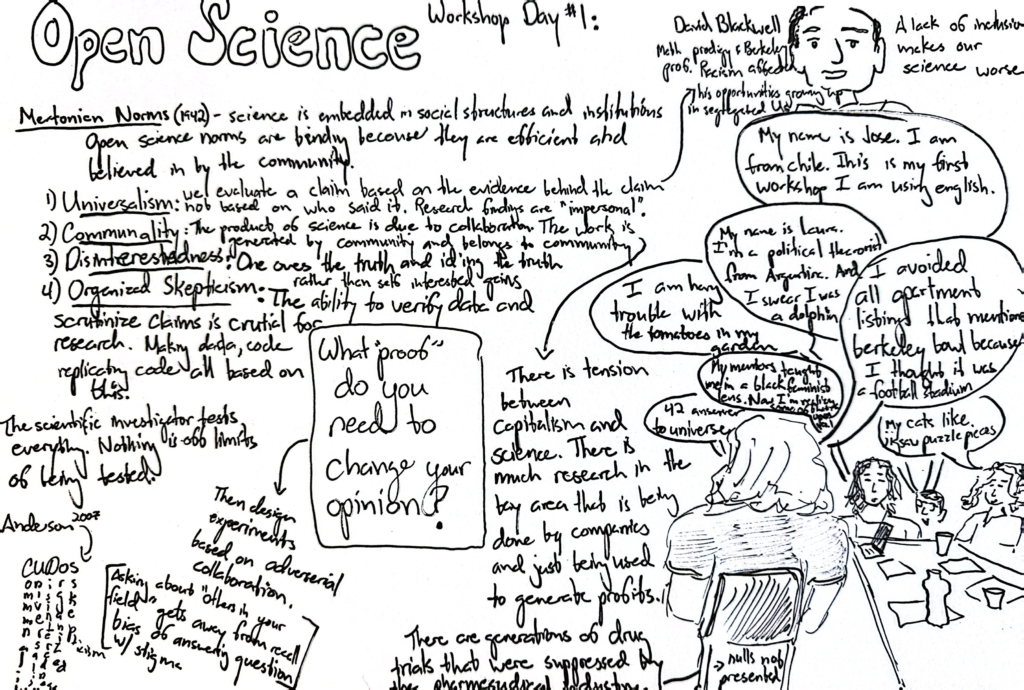 Open Science
Workshop Day #1:
David Blackwell
Math prodigy & Berkeley
prof. Racism affected
his opportunities growing up
in segregated US
A lack of inclusion
makes our
science worse
Mertonian Norms (1942) - science is embedded in social structures and institutions
Open science norms are binding because they are efficient and
believed in by the community.
1) Universalism: we evaluate a claim based on the evidence behind the claim
not based on who said it. Research findings are "impersonal".
2) Communality: The product of science is due to collaboration. The work is
generated by community and belongs to community
3) Disinterestedness: One owes the truth and iding the truth
rather then self interested gains
4) Organized Skepticism: The ability to verify data and
scrutinize claims is crutial for
research. Making data, code
replicating code all based on
this.
The scientific investigator tests
everything. Nothing is off limits
of being tested.
Anderson 2007
CUDOS
What "proof"
do you
need to
change your
opinion?
Then design
experiments
based on adverserial
collaboration.
Asking about "others in your
field" gets away from recall
bias of answering question
w/ stigma
There is tension
between
capitalism and
science. There is
much research in the
bay area that is being
done by companies
and just being used
to generate profits.
There are generations of drug
trials that were suppressed by
the pharmesudical industry.
→ nulls not
presented
My name is Jose. I am
from Chile. This is my first
workshop I am using english.
My name is Laura.
I'm a political theorist
from Argentina. And
I swear I was
a dolphin
I am having
trouble with
the tomatoes in my
garden
I avoided
all apartment
listings that mentioned
berkeley bowl because
I thought it was
a football stadium
My mentors taught
me in a black feminist
lens. Now I'm
42 answer
to universe
My cats like
jiksaw puzzle pieces